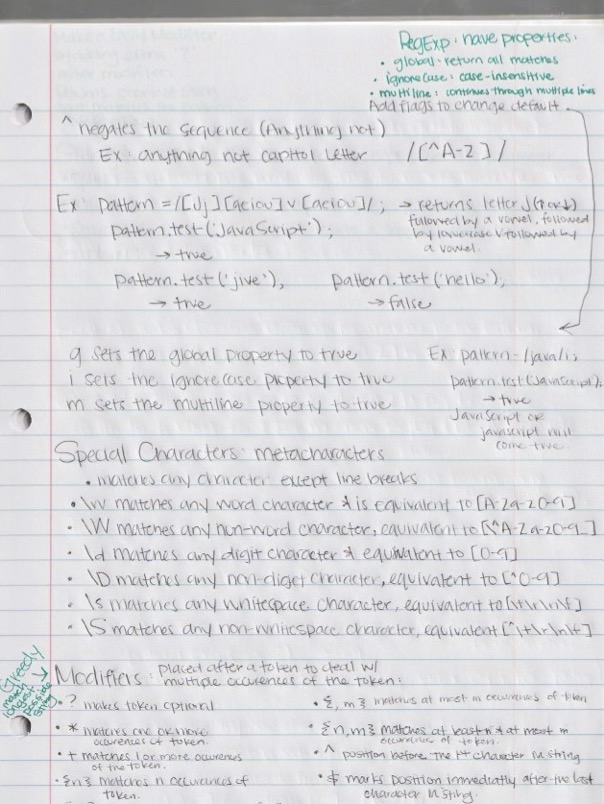 RegExp: have properties:
• global: return all matches
• ignorecase: case-insensitive
• multiline: continues through multiple lines
Add flags to change default.
^ negates the sequence (Anything not)
Ex: anything not capitol letter /[^A-Z]/
Ex: pattern = /[Jj][aeiou]v[aeiou]/; → returns letter J(↑or↓)
followed by a vowel, followed
by lowercase v followed by
a vowel.
pattern.test('JavaScript');
→ true
pattern.test('jive'); pattern.test('hello');
→ true → false
g sets the global property to true
i sets the ignorecase property to true
m sets the multiline property to true
Ex: pattern = /java/i;
pattern.test(JavaScript);
→ true
JavaScript or
javascript will
come true.
Special Characters: metacharacters
• matches any character except line breaks
• \w matches any word character & is equivalent to [A-Za-z0-9]
• \W matches any non-word character, equivalent to [^A-Za-z0-9_]
• \d matches any digit character & equivalent to [0-9]
• \D matches any non-diget character, equivalent to [^0-9]
• \s matches any whitespace character, equivalent to [\t\r\n\f]
• \S matches any non-whitespace character, equivalent [^\t\r\n\f]
Greedy
match
longest
possible
string
Modifiers: placed after a token to deal w/
multiple occurences of the token:
• ? makes token optional
• * matches one or more
occurences of token.
• + matches 1 or more occurences
of the token.
• {n} matches n occurences of
token.
• {, m} matches at most m occurences of token
• {n,m} matches at least n & at most m
occurences of token.
• ^ position before the 1st character in string
• $ marks position immediately after the last
character in string.